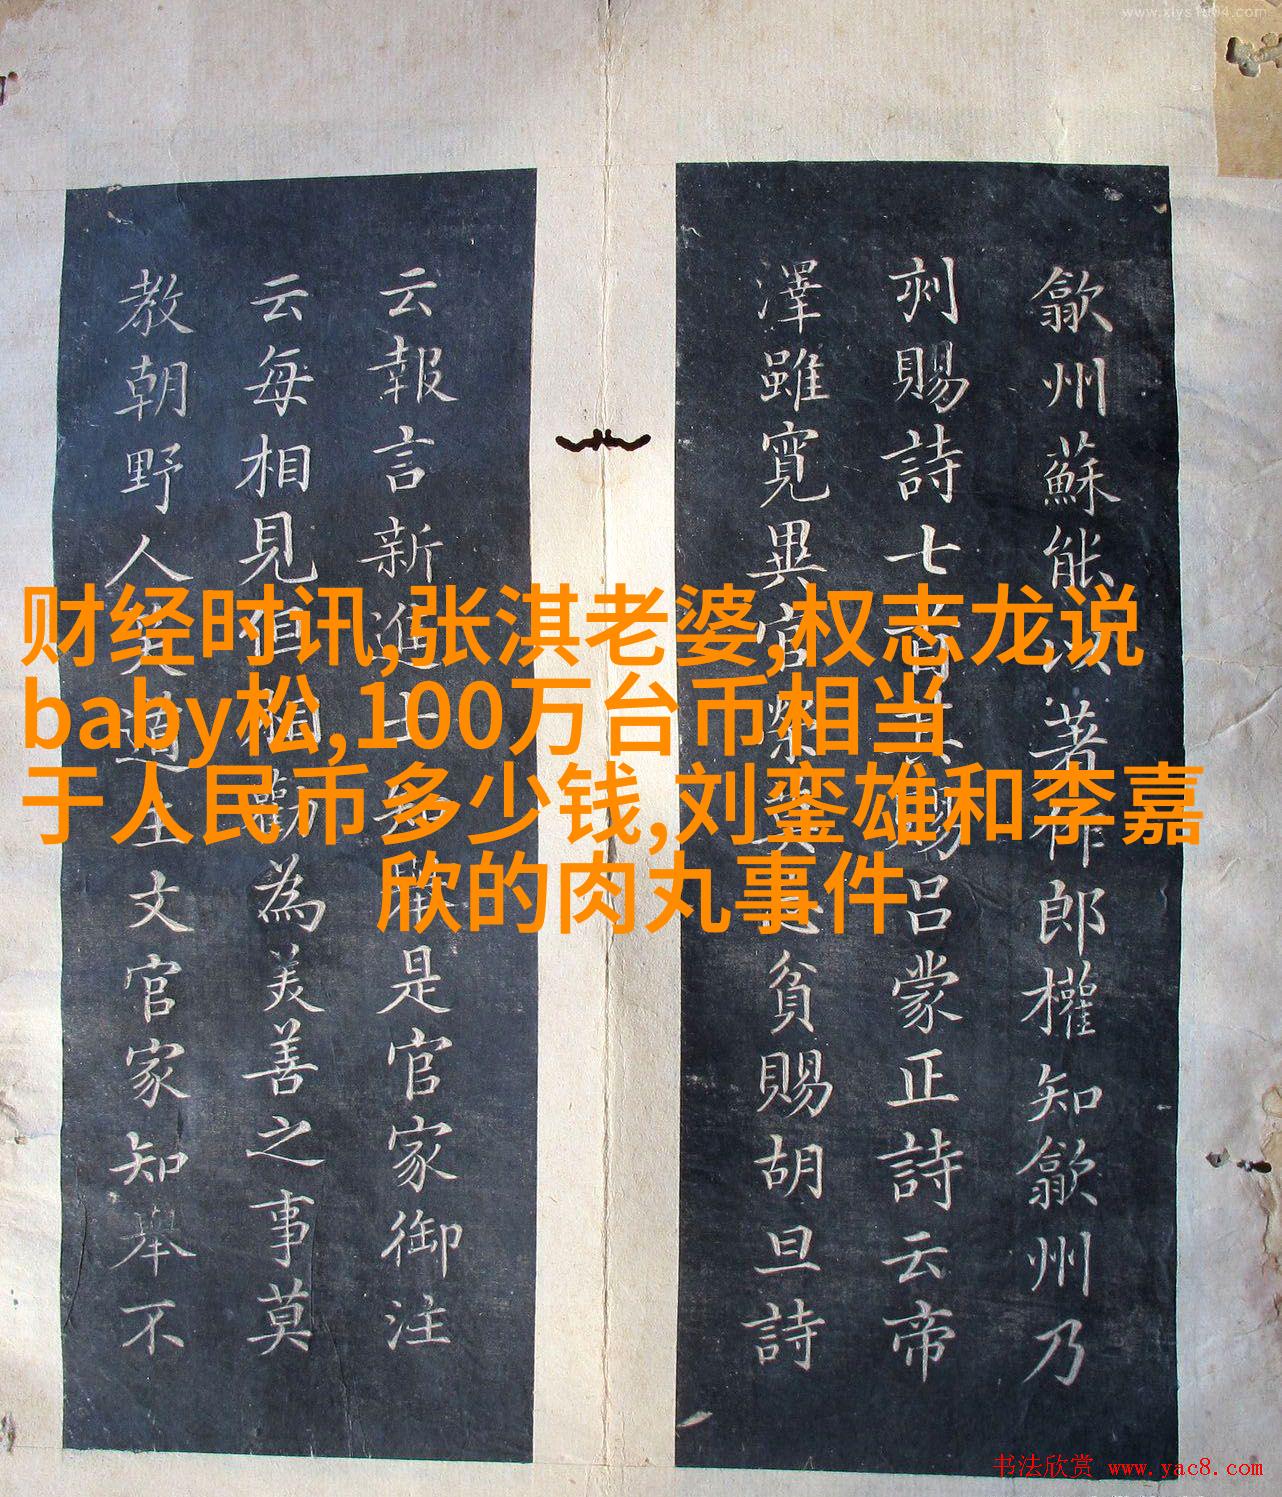 www.xlys1904.com
歙州蘇能以著作郎權知歙州乃
刾賜詩七首其賜呂蒙正詩云帝
澤雖寬異貧賜胡旦詩
云報言新進士知舉是官家御注
云每相見但相勸為美善之事莫
教朝野人笑道主文官家知舉不
财经时讯,张淇老婆,权志龙说
baby松,100万台币相当
于人民币多少钱,刘銮雄和李嘉
欣的肉丸事件
书法欣赏 www.yac8.com